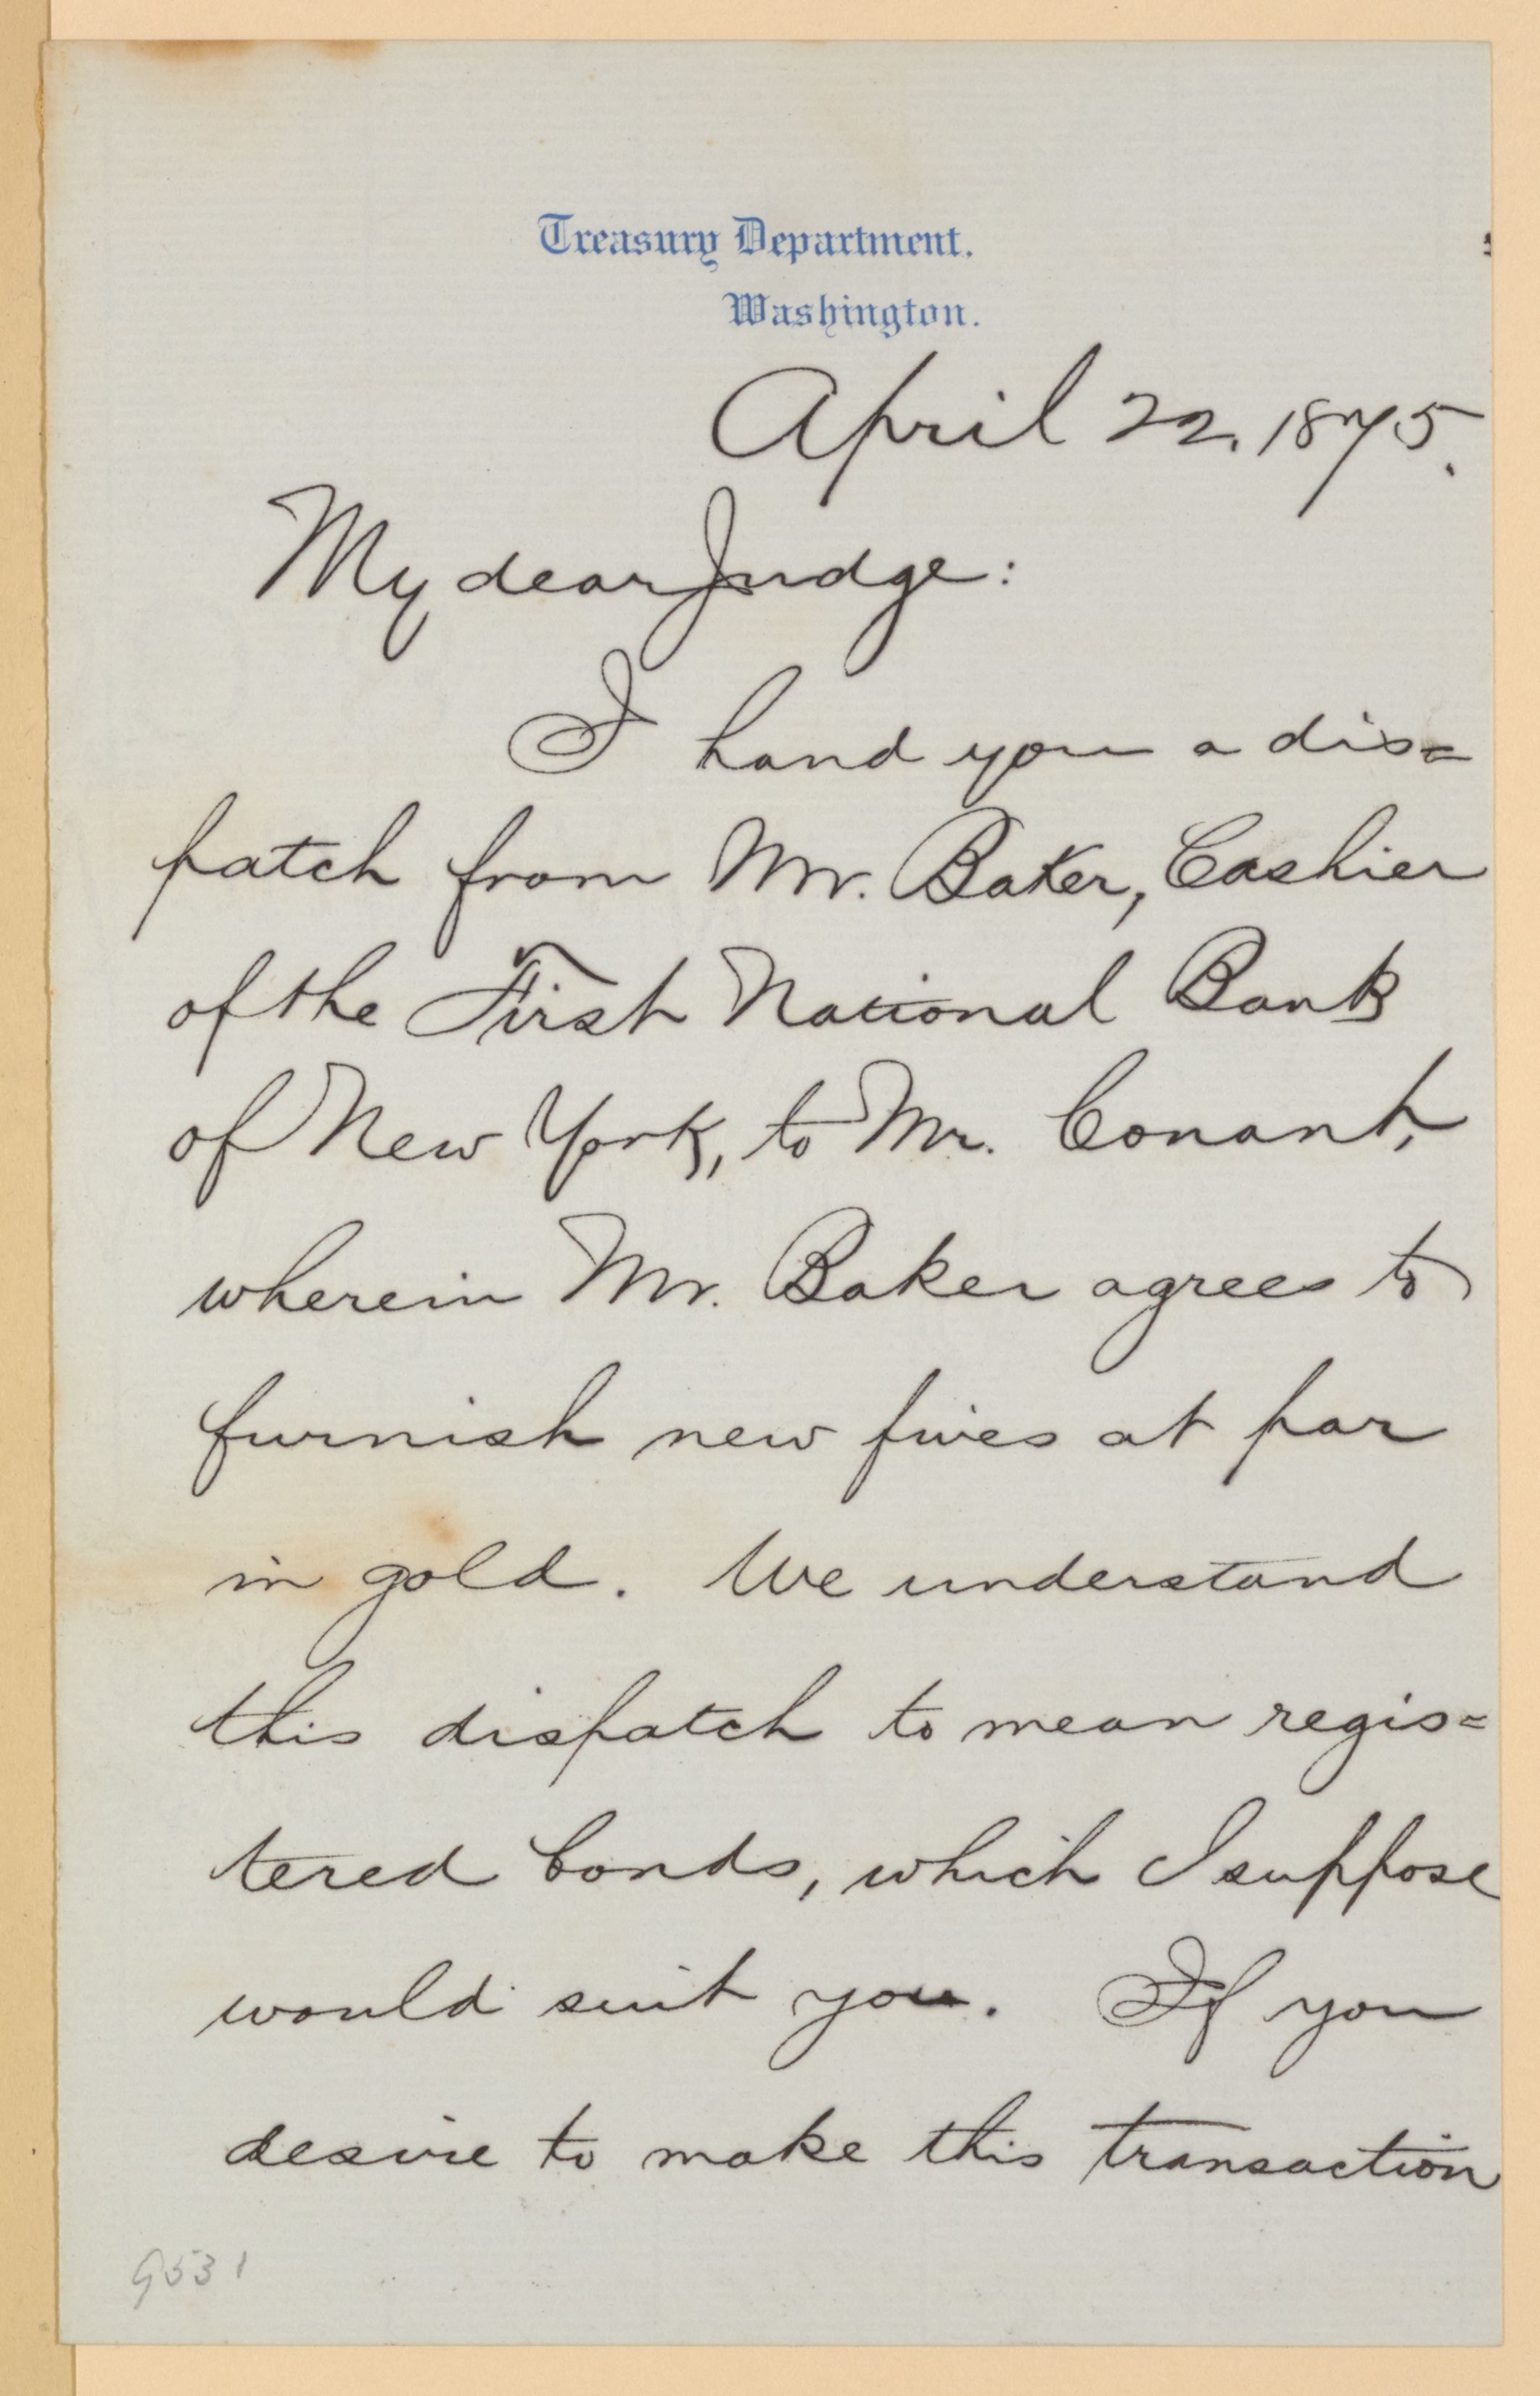 Treasury Department.
Washington.
April 22, 1875.
My dear Judge:
I hand you a dis=
patch from Mr. Baker, Cashier
of the First National Bank
of New York, to Mr. Conant,
wherein Mr. Baker agrees to
furnish new fives at par
in gold. We understand
this dispatch to mean regis=
tered bonds, which I suppose
would suit you. If you
desire to make this transaction
9531